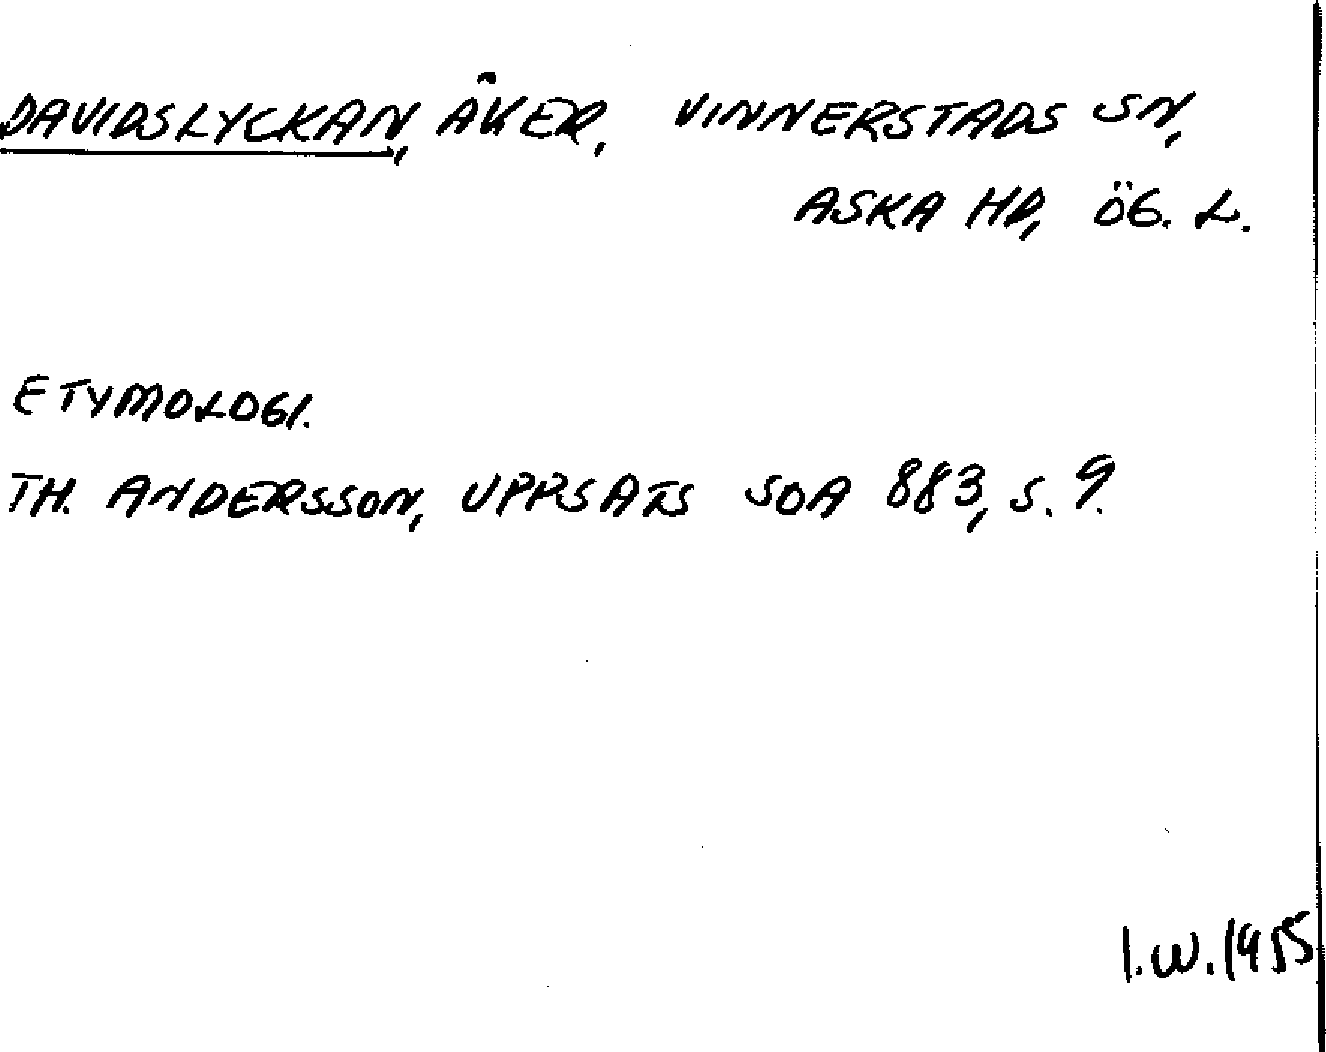 DAVIDSLYCKAN, ÅKER, VINNERSTADS SN,
ASKA HD, ÖG. L.
ETYMOLOGI.
TH. ANDERSSON, UPPSATS SOA 883, S. 9.
I.W. 1955